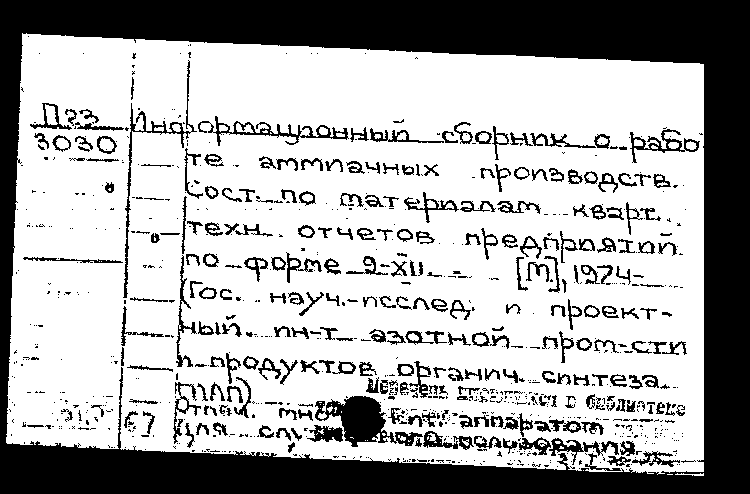 П23
3030
Информационный сборник о рабо
те аммиачных производств.
Сост. по материалам кварт.
техн. отчетов предприятий
по форме 9-XII. - [М], 1974-
(Гос. науч.-исслед. и проект-
ный. ин-т азотной пром-сти
и продуктов органич. синтеза
(ГИАП)
Перечень имеющихся в библиотеке
Отпеч. аппаратом
67 Для пользования